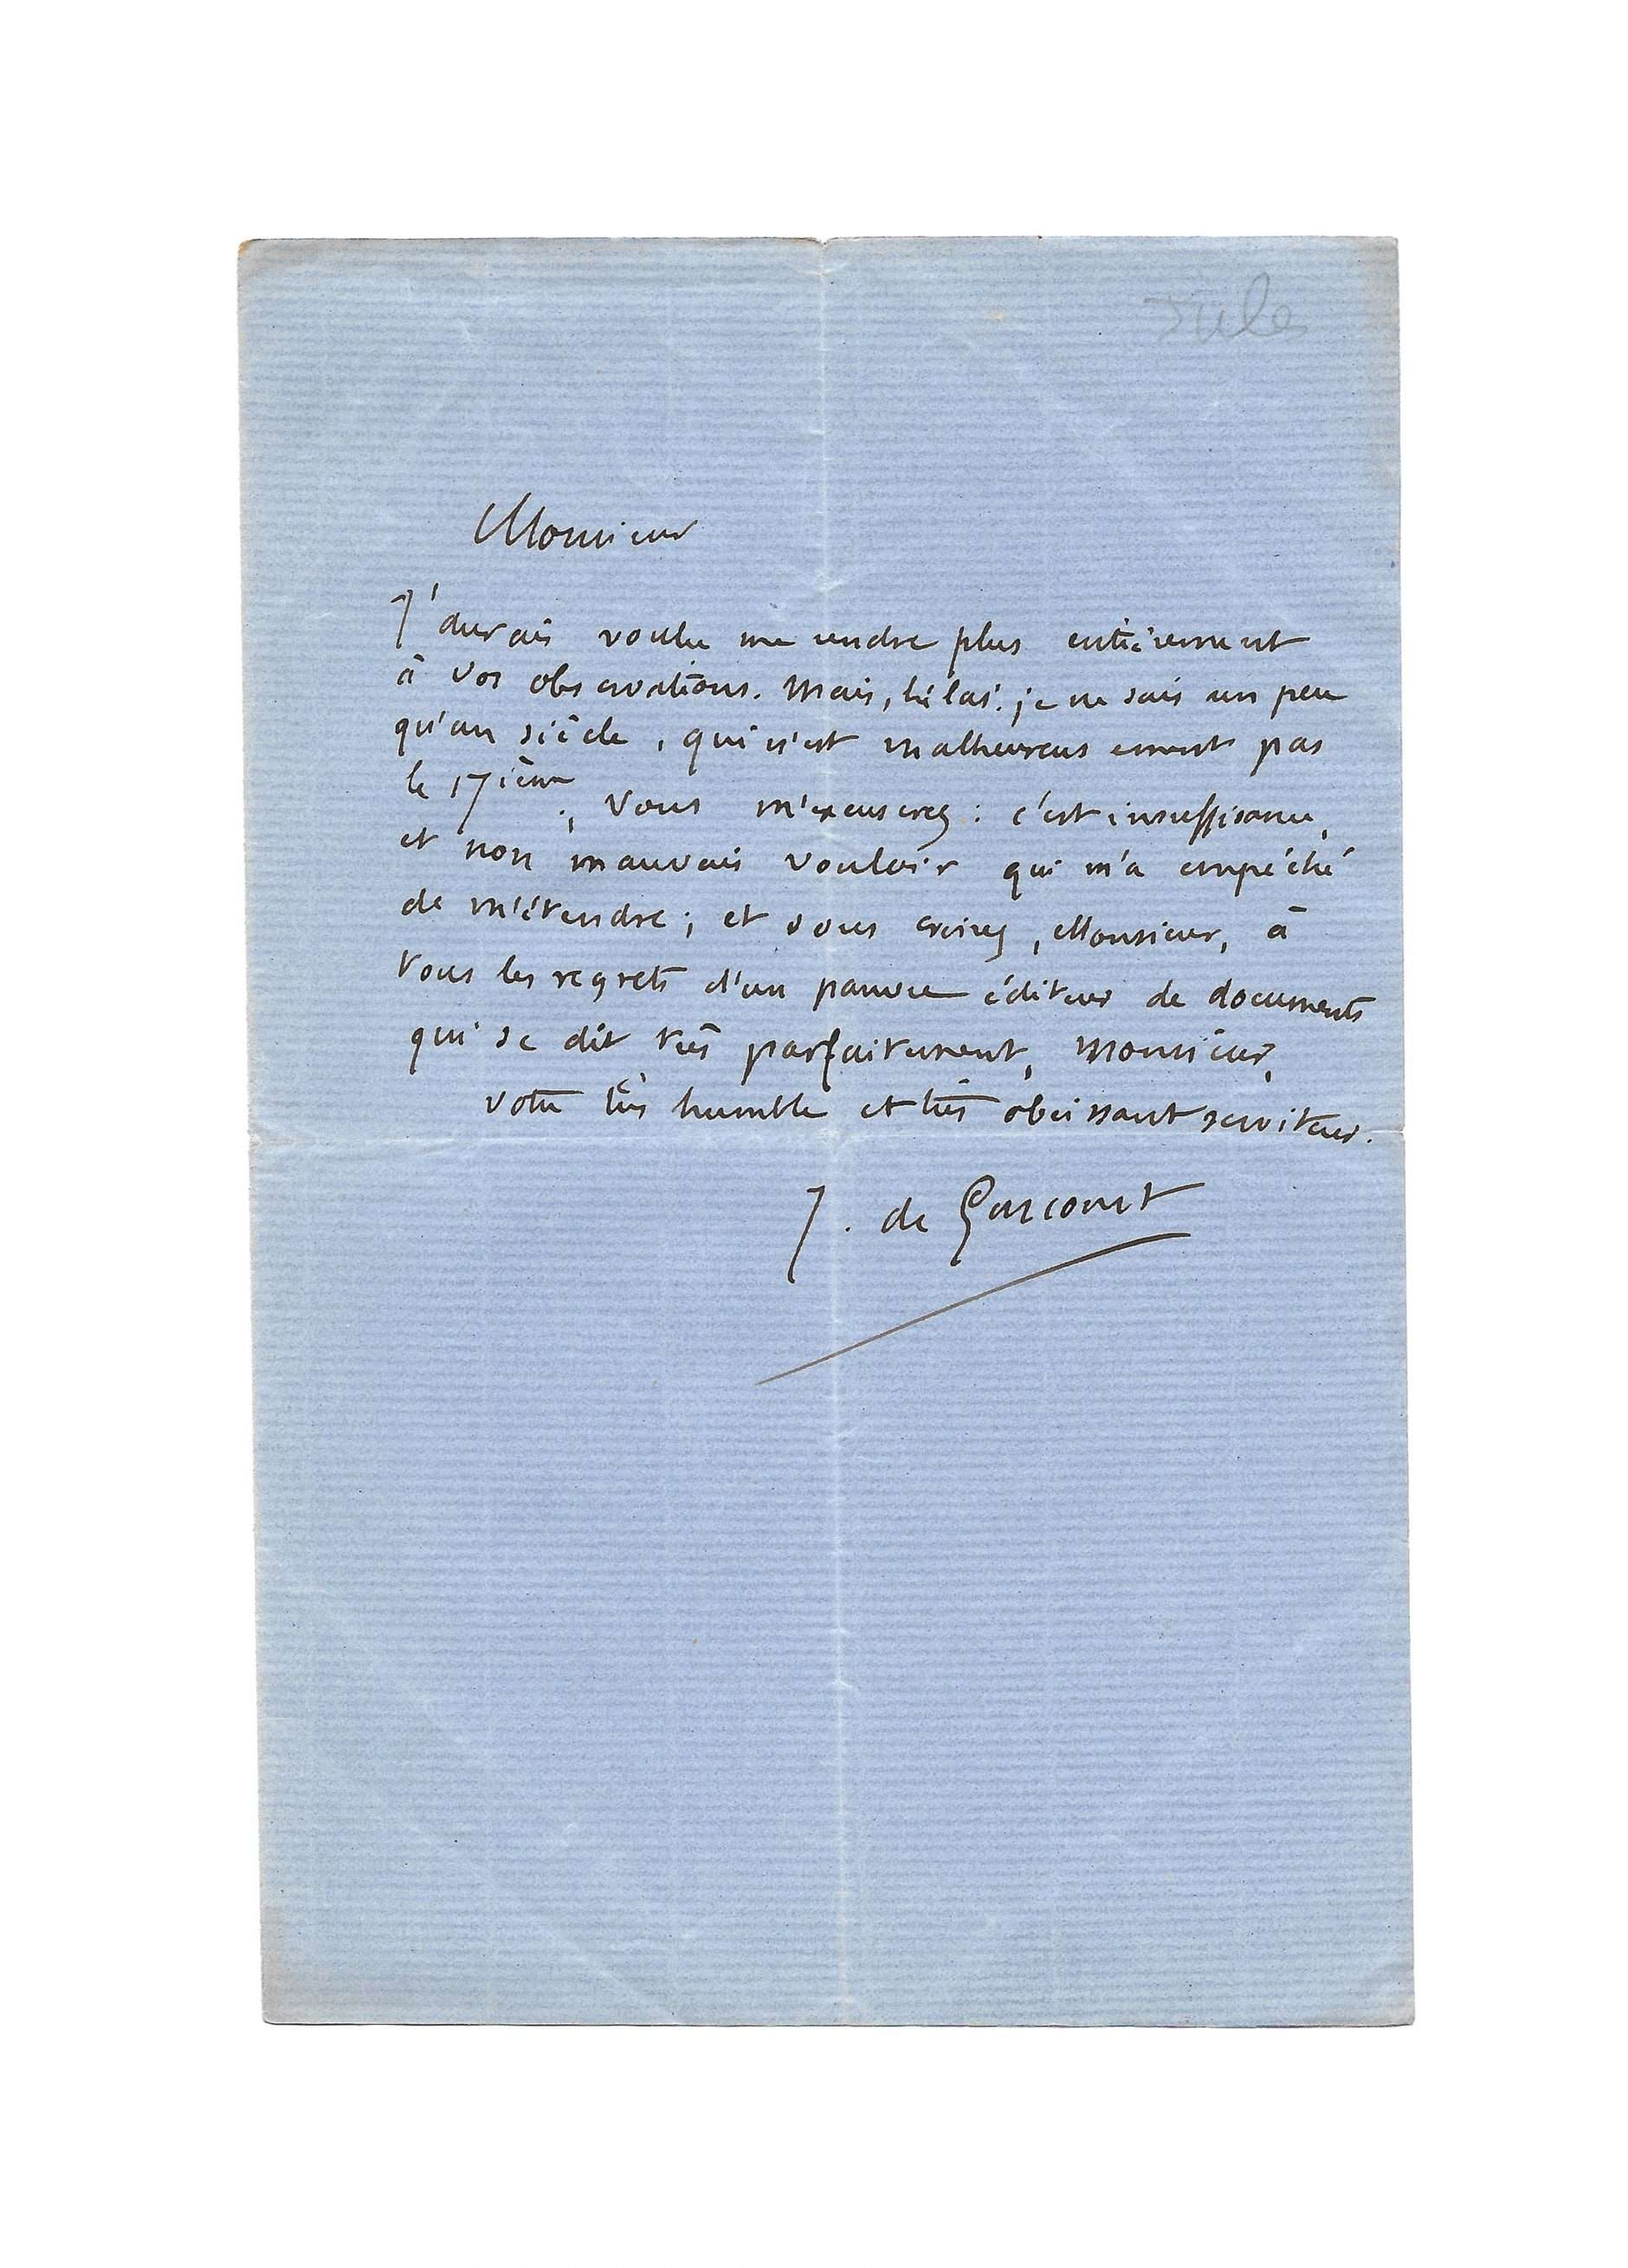 Jules
Monsieur
J'aurais voulu me rendre plus entièrement
à vos observations. Mais, hélas! je ne sais un peu
qu'un siècle, qui n'est malheureusement pas
le 17ième. Vous m'excuserez : c'est insuffisance,
et non mauvais vouloir qui m'a empêché
de m'étendre ; et vous croirez, Monsieur, à
tous les regrets d'un pauvre éditeur de documents
qui se dit très parfaitement, Monsieur,
votre très humble et très obéissant serviteur.
J. de Goncourt